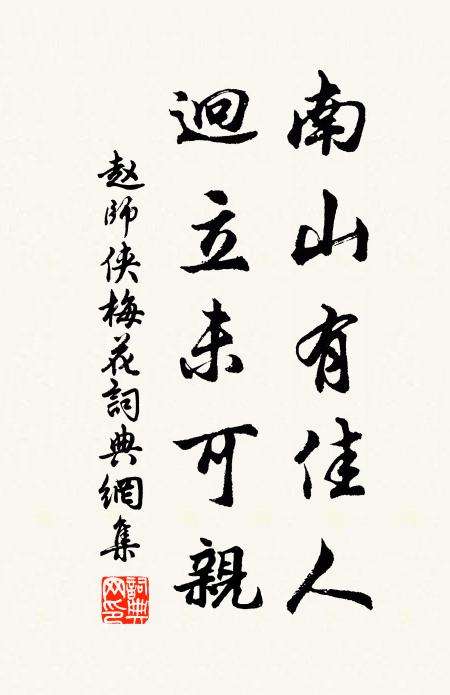 南山有佳人
迥立未可親
赵師侠梅花詞典網集
詞典網印